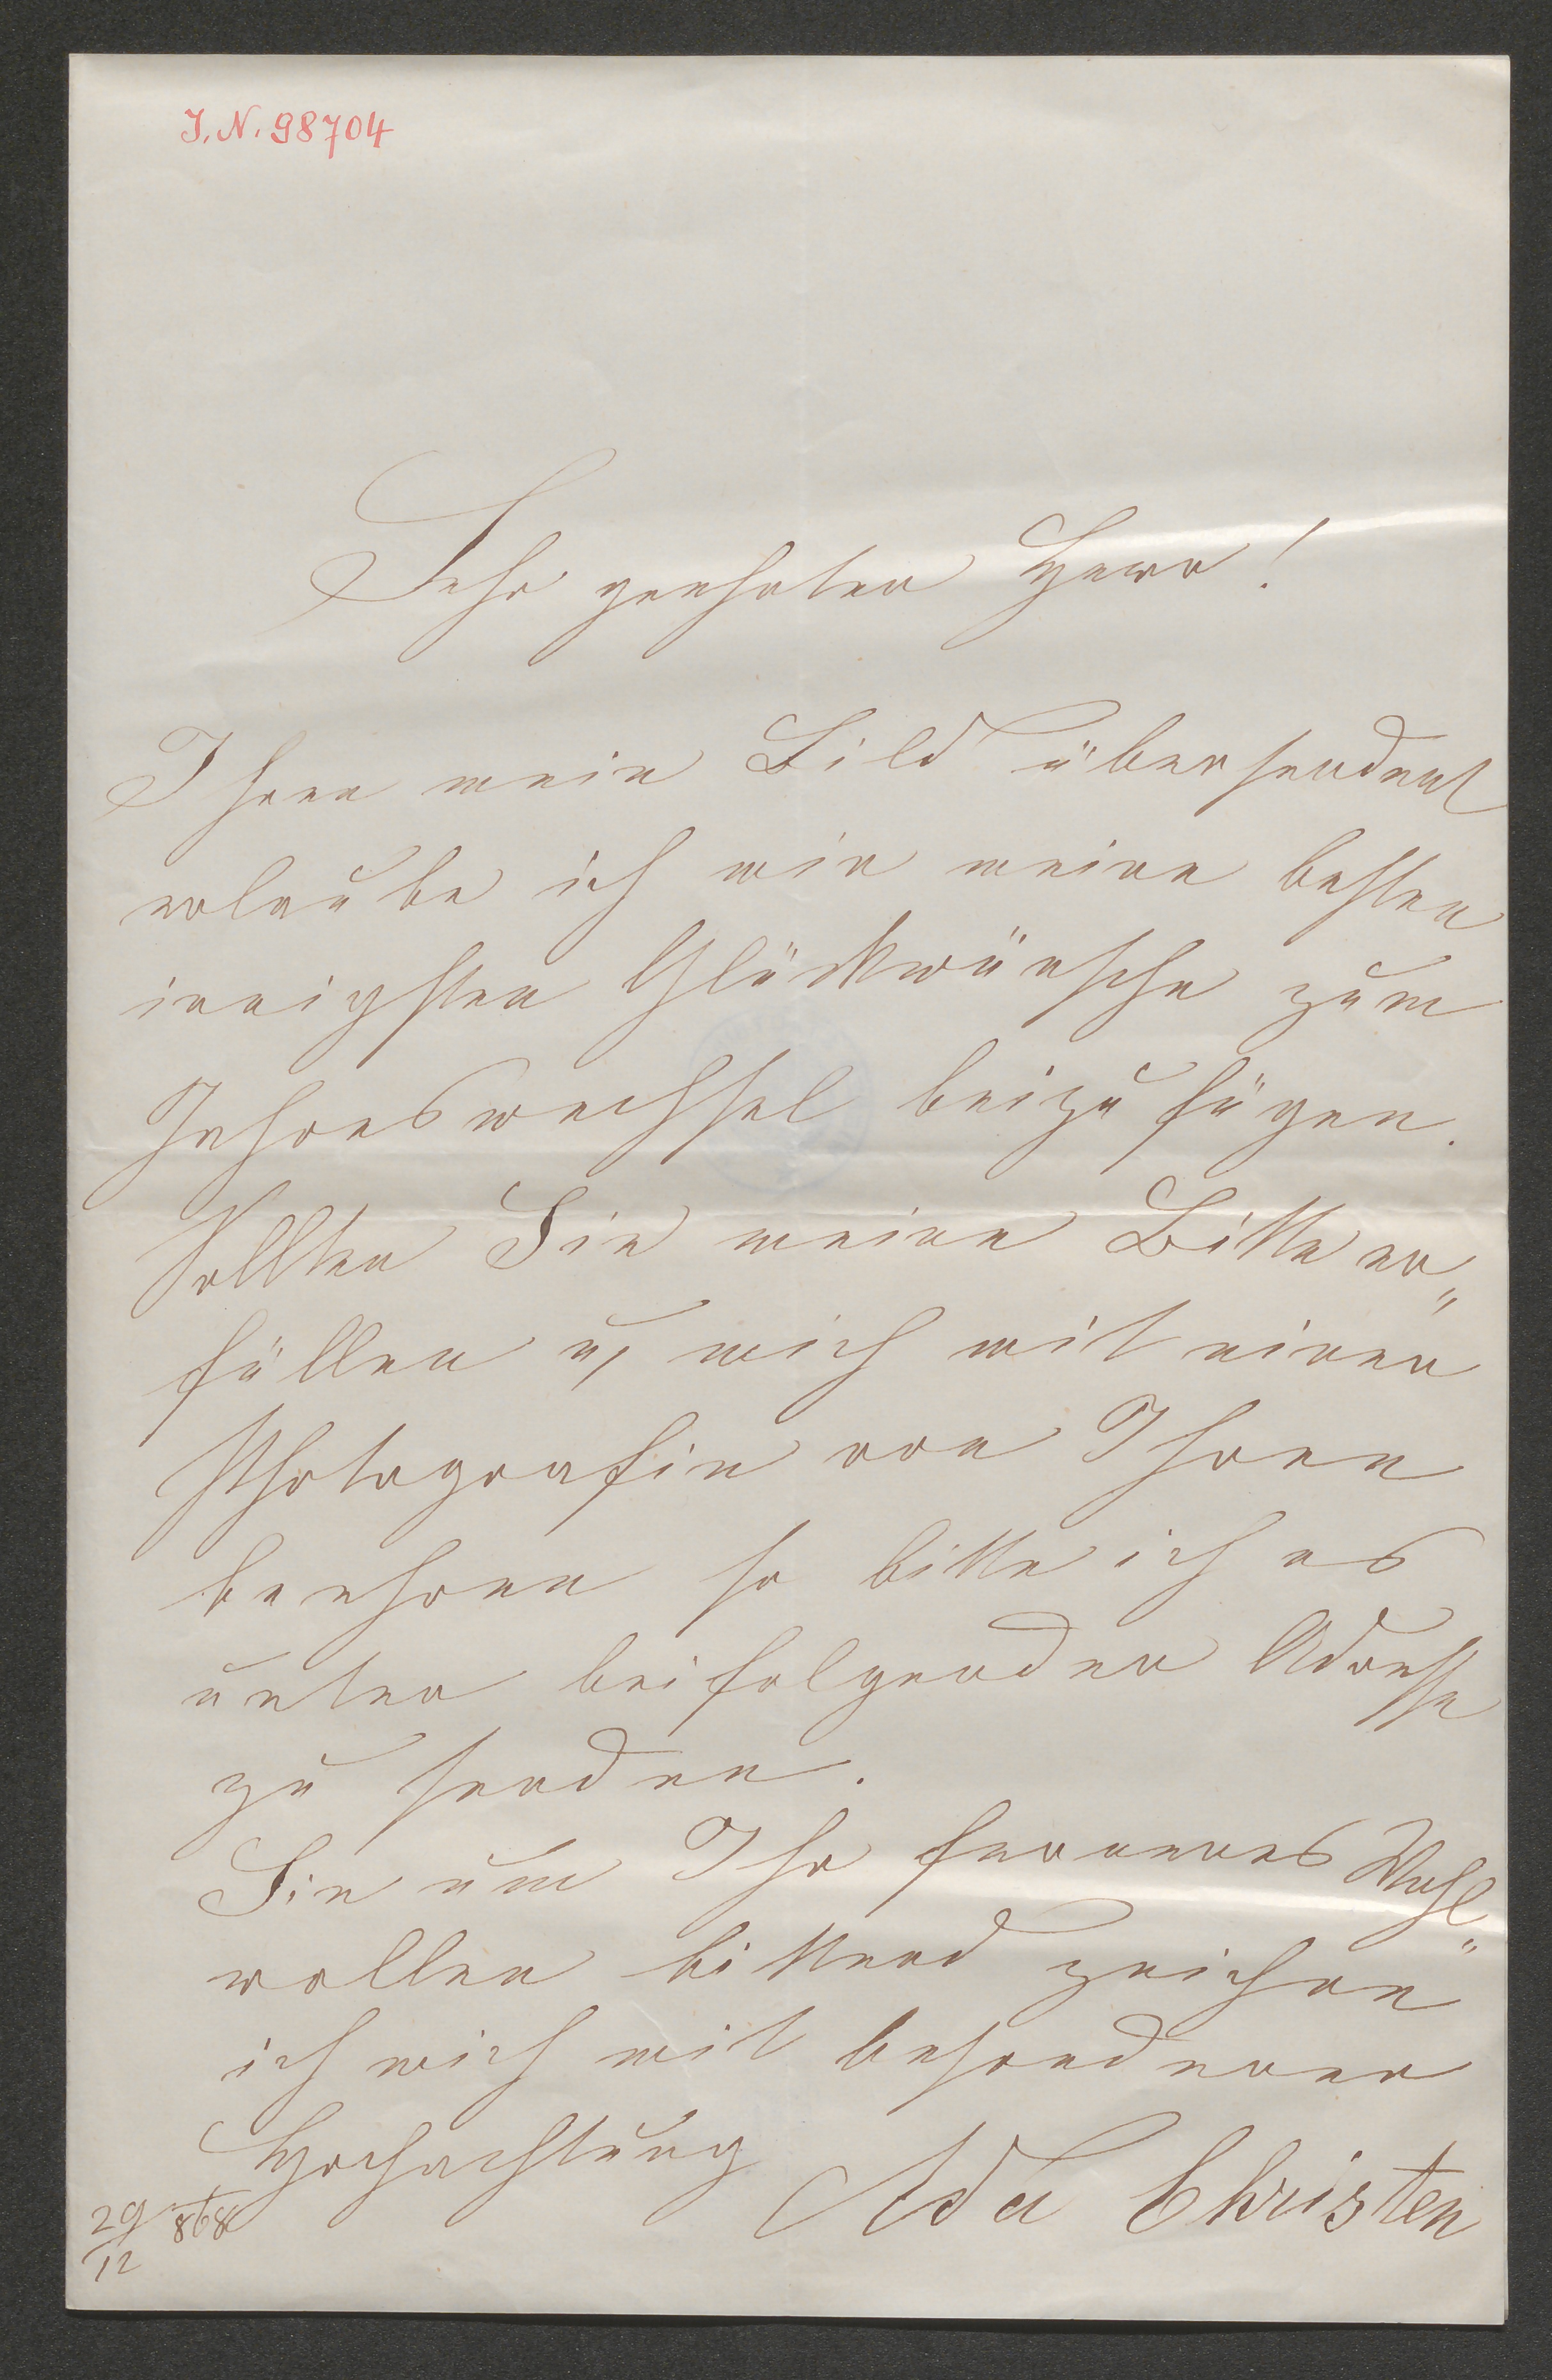 J. N. 98704
Sehr geehrter Herr!
Ihnen mein Bild übersendent
erlaube ich mir meine besten
innigsten Glückwünsche zum
Jahreswechsel beizufügen.
Sollten Sie meine Bitte er„
füllen u, mich mit einer
Photografie von Ihnen
beehren so bitte ich es
unter beifolgender Adresse
zu senden.
Sie um Ihr ferneres Wohl„
wollen bittend zeichne
ich mich mit besonderer
Hochachtung
Ada Christen
29/12 868